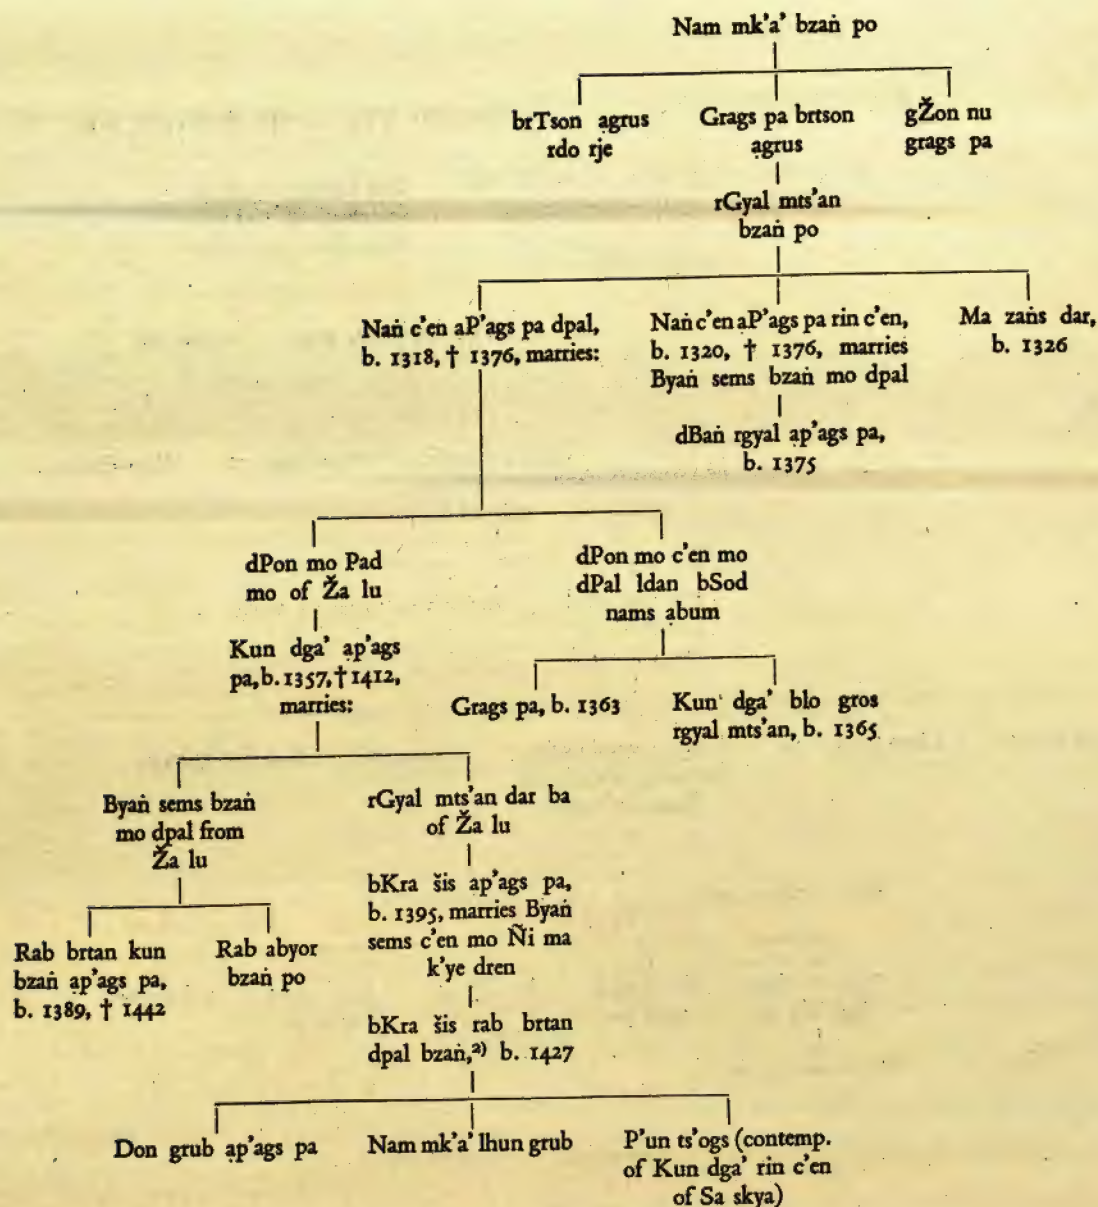 Nam mk'a' bzaṅ po
brTson ạgrus
rdo rje
Grags pa brtson
ạgrus
gŽon nu
grags pa
rGyal mts'an
bzaṅ po
Naṅ c'en aP'ags pa dpal,
b. 1318, † 1376, marries:
Naṅ c'en aP'ags pa rin c'en,
b. 1320, † 1376, marries
Byaṅ sems bzaṅ mo dpal
Ma zaṅs dar,
b. 1326
dBaṅ rgyal ạp'ags pa,
b. 1375
dPon mo Pad
mo of Ža lu
dPon mo c'en mo
dPal ldan bSod
nams ạbum
Kun dga' ạp'ags
pa, b. 1357, † 1412,
marries:
Grags pa, b. 1363
Kun dga' blo gros
rgyal mts'an, b. 1365
Byaṅ sems bzaṅ
mo dpal from
Ža lu
rGyal mts'an dar ba
of Ža lu
Rab brtan kun
bzaṅ ạp'ags pa,
b. 1389, † 1442
Rab abyor
bzaṅ po
bKra šis ap'ags pa,
b. 1395, marries Byaṅ
sems c'en mo Ñi ma
k'ye dren
bKra šis rab brtan
dpal bzaṅ,²⁾ b. 1427
Don grub ạp'ags pa
Nam mk'a' lhun grub
P'un ts'ogs (contemp.
of Kun dga' rin c'en
of Sa skya)